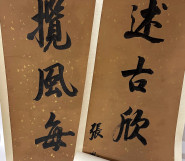 述古欣
張
攬風每